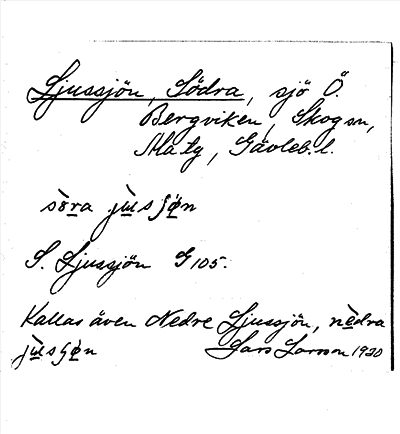 Ljussjön, Södra, sjö Ö.
Bergviken, Skogsn,
Ala tg, Gävleb. l.
sò̱ra jù̱lsʃø̱n
S. Ljussjön G 105.
Kallas även Nedre Ljussjön, nè̱dra
jù̱lsʃø̱n Lars Larsson 1920